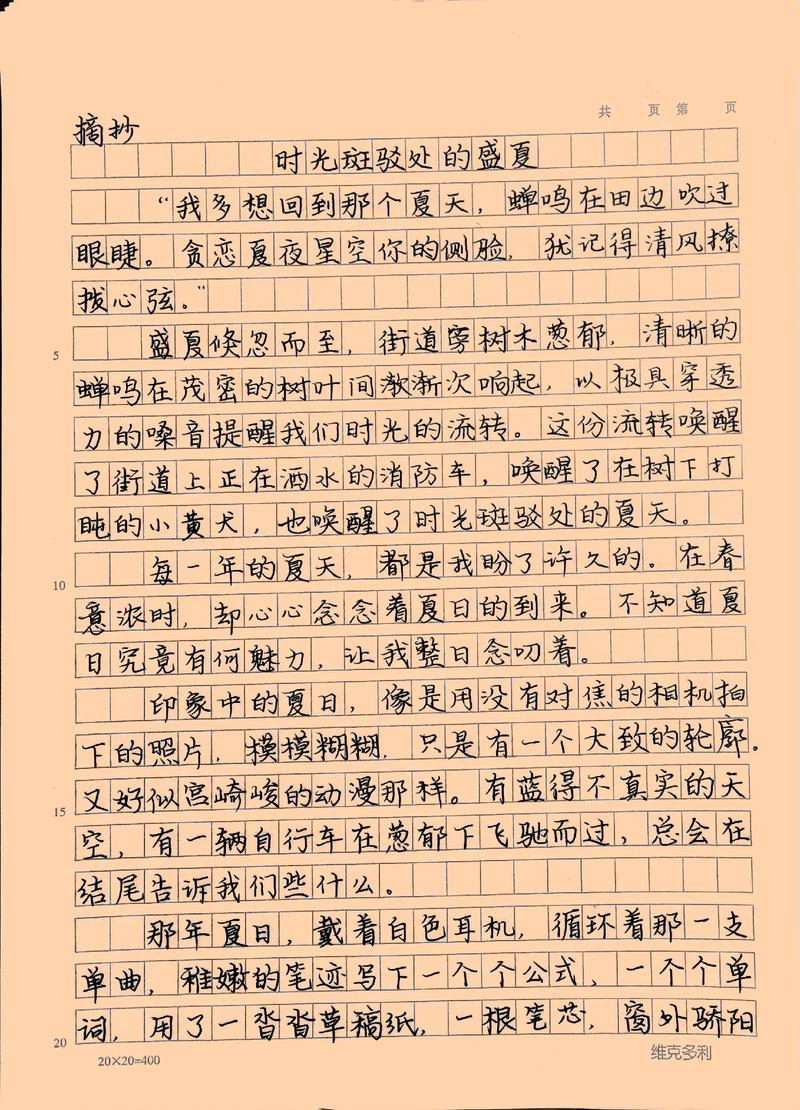 共 页 第 页
摘抄
时光斑驳处的盛夏
“我多想回到那个夏天，蝉鸣在田边吹过
眼睫。贪恋夏夜星空你的侧脸，犹记得清风撩
拨心弦。”
盛夏倏忽而至，街道旁树木葱郁，清晰的
蝉鸣在茂密的树叶间渐渐次响起，以极具穿透
力的嗓音提醒我们时光的流转。这份流转唤醒
5
了街道上正在洒水的消防车，唤醒了在树下打
盹的小黄犬，也唤醒了时光斑驳处的夏天。
每一年的夏天，都是我盼了许久的。在春
10
意浓时，却心心念念着夏日的到来。不知道夏
日究竟有何魅力，让我整日念叨着。
印象中的夏日，像是用没有对焦的相机拍
下的照片，模模糊糊，只是有一个大致的轮廓。
又好似宫崎峻的动漫那样。有蓝得不真实的天
15
空，有一辆自行车在葱郁下飞驰而过，总会在
结尾告诉我们些什么。
那年夏日，戴着白色耳机，循环着那一支
单曲，稚嫩的笔迹写下一个个公式，一个个单
词，用了一沓沓草稿纸，一根笔芯，窗外骄阳
20
20×20=400
维克多利